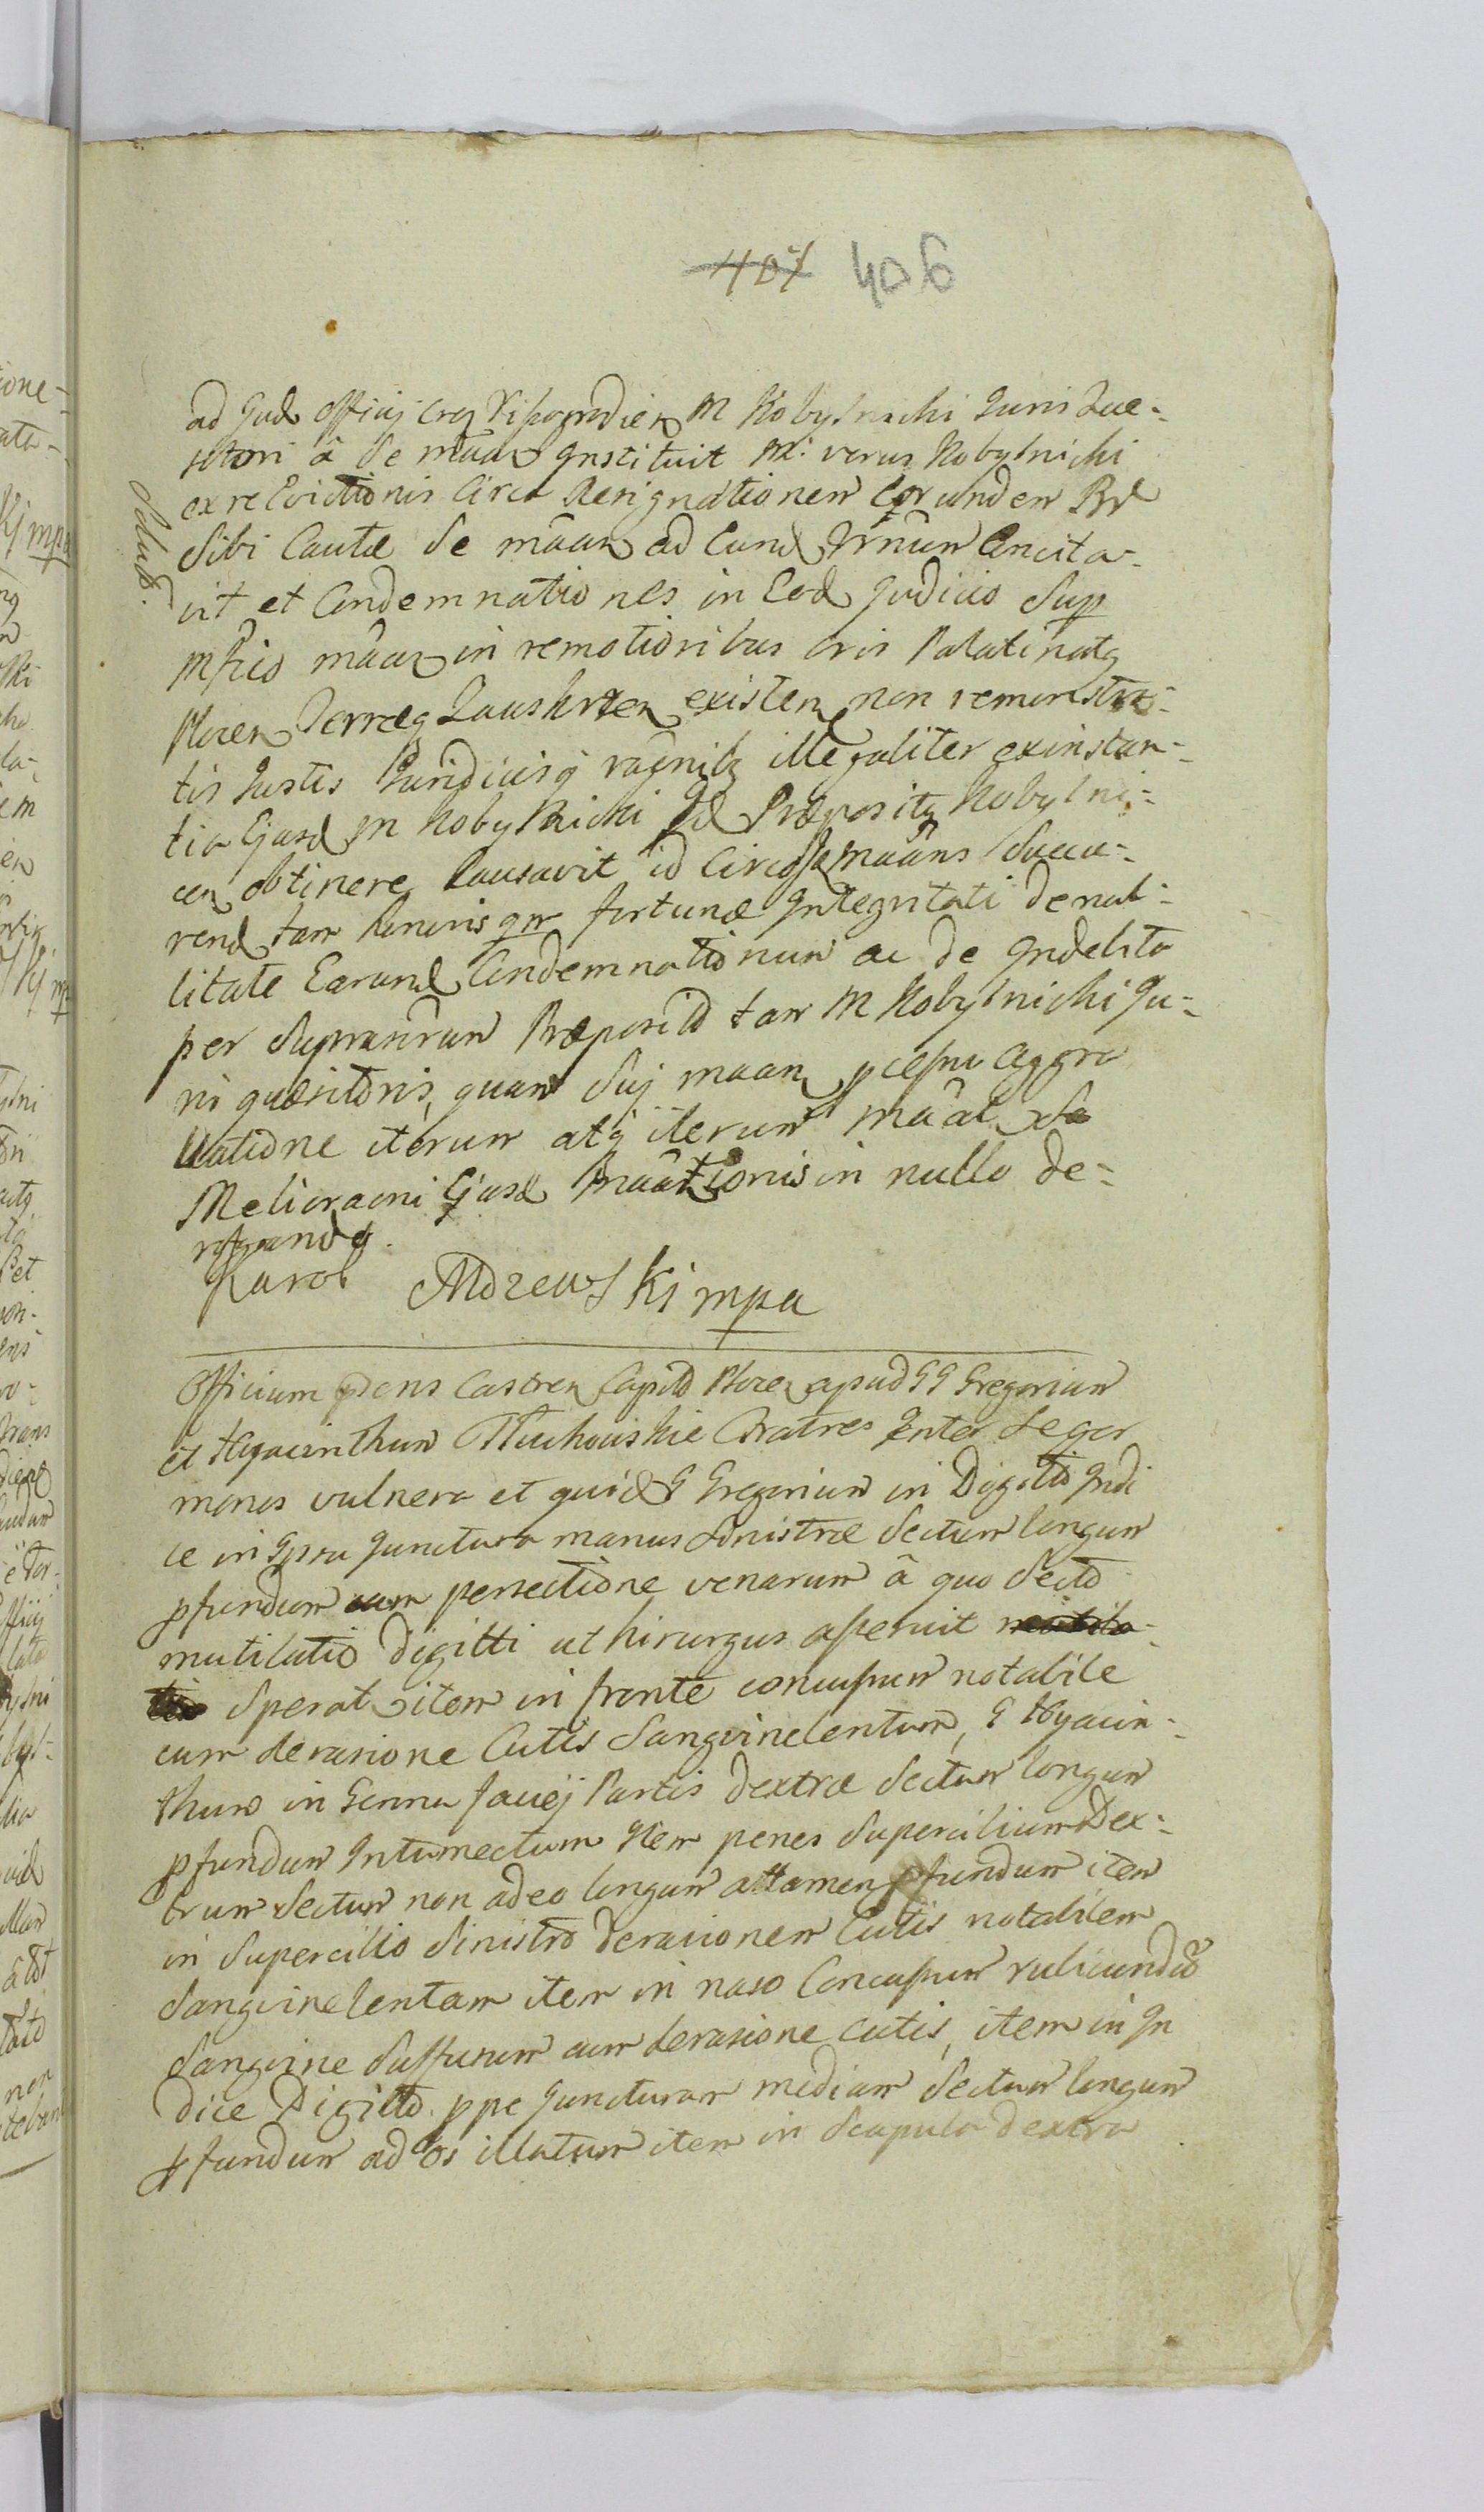 407 406
ad Jud officij Crey Visogrodien M Kobylnicki Juri Quae-
sitori â Se mâan Instituit M: verus Kobylnicki
ex re Evictionis Circa Resignationem Eorundem
Sibi Cautae Se mâan ad Eund Trnum Concita-
vit et Condemnationes in Eod Judicio Sup
Mfico mâan in remotioribus oris Palatinatq
Plocen Terraeq Zauskrzen existen non remonstra-
tis Justis Juridicisq raonibq illegaliter ex instan-
tia Ejusd M Kobylnicki Praepositq Kobylni-
cen obtinere Causavit id circo mâans Succu-
rend tam honoris qm fortunae Integritati de nul-
litate Earund Condemnationum ac de Indebita
per Suprascrum Praeposito tam M Kobylnicki Ju-
ri quaesitoris, quam Suj maan pcessu Aggra
Uatione iterum atq iterum mâat Sa
Melioraoni Ejusd Mâationis in nullo de-
rogando.
Karol Andrzewski mpa
Salua
Officium pdens Castren Capitle Plocen apud GG Gregorium
et Hyacinthum Tluchowskie Fratres Inter Se ger
manos vulnera et quid G Gregorium in Digito Indi
ce in Ipsa Junctura manus Sinistrae Sectum longum
pfundum cum persectione venarum â quo Secto
mutilatio Digitti ut hirurgus asseruit
Sperat item in fronte concussum notabile
cum derasione Cutis Sanguinelentum, G Hyacin-
thum in Genna faciej Partis dextrae Sectum longum
pfundum Intumectum Item penes Supercilium Dex-
trum Sectum non adeo longum attamen pfundum item
in Supercilio Sinistro derasionem Cutis notabilem
Sanguinelentam item in naso Concussum rubicundũ
Sanguine Suffusum cum derasione cutis, item in In
dice Digitto ppe Juncturam mediam Sectum longum
pfundum ad os illatum item in Scapula dextra